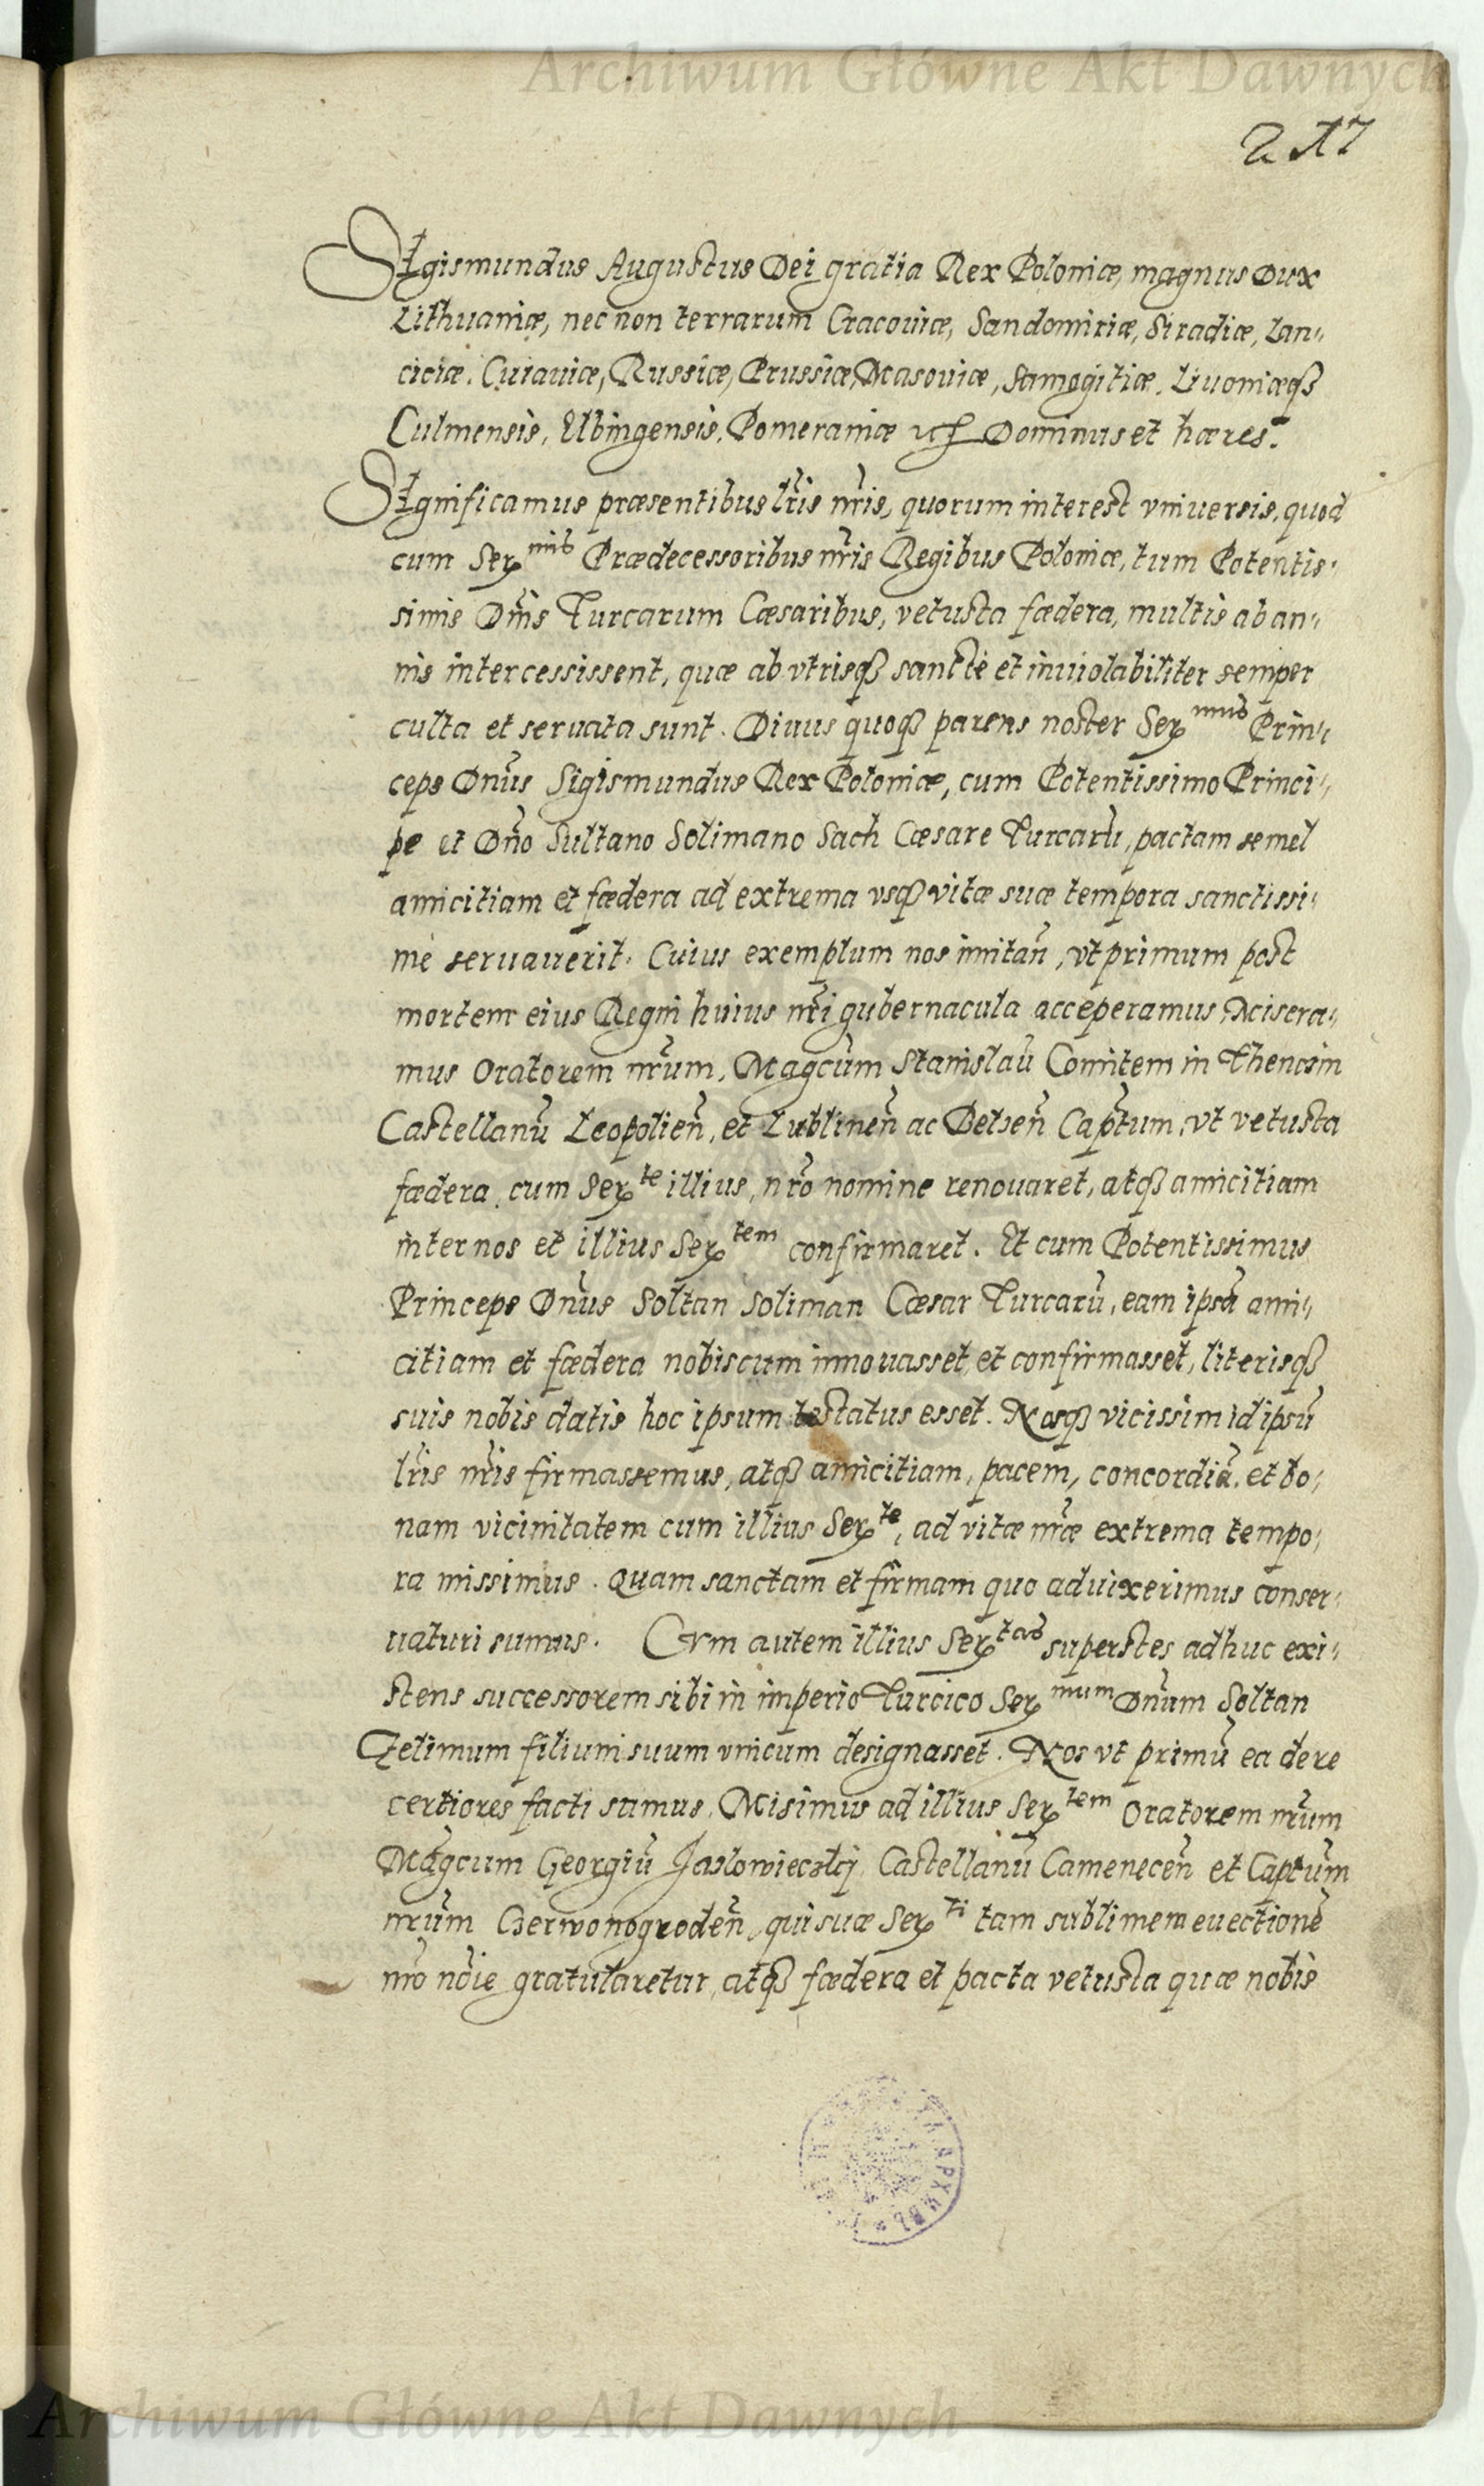 Archiwum Główne Akt Dawnych
217
SIgismundus Augustus Dei gratia Rex Poloniæ, magnus Dux
Lithuaniæ, nec non terrarum Cracouiæ, Sandomiriæ, Siradiæ, Lan„
ciciæ. Cuiauiæ, Russiæ, Prussiæ, Masouiæ, Samogitiæ. Liuoniæqȝ
Culmensis, Elbingensis. Pomeraniæ Dominus et hæres.
SIgnificamus præsentibus lr̃is nr̃is, quorum interest vniuersis, quod
cum Ser^mis Prædecessoribus nr̃is Regibus Poloniæ, tum Potentis„
simis Dñis Turcarum Cæsaribus, vetusta fædera, multis ab an„
nis intercessissent, quæ ab vtrisqȝ sanctè et inuiolabiliter semper
culta et seruata sunt. Diuus quoqȝ parens noster Ser^mus Prin„
ceps Dñus Sigismundus Rex Poloniæ, cum Potentissimo Princi„
pe et Dño Sultano Solimano Sach Cæsare Turcarũ, pactam semel
amicitiam et fædera ad extrema vsqȝ vitæ suæ tempora sanctissi„
mè seruauerit. Cuius exemplum nos imitañ, vt primum post
mortem eius Regni huius nr̃i gubernacula acceperamus, Misera„
mus Oratorem nr̃um, Magcũm Stanislaũ Comitem in Thencin
Castellanũ Leopolieñ, et Lublineñ ac Belzeñ Capt̃um, vt vetusta
fædera, cum Ser^te illius, nr̃o nomine renouaret, atqȝ amicitiam
inter nos et illius Ser^tem confirmaret. Et cum Potentissimus
Princeps Dñus Soltan Soliman Cæsar Turcarũ, eam ipsã ami„
citiam et fædera nobiscum innouasset, et confirmasset, literisqȝ
suis nobis datis hoc ipsum testatus esset. Nosqȝ vicissim id ipsũ
lr̃is nr̃is firmassemus, atqȝ amicitiam, pacem, concordiã. et bo„
nam vicinitatem cum illius Ser^te, ad vitæ nr̃æ extrema tempo„
ra missimus. Quam sanctam et firmam quo aduixerimus conser„
uaturi sumus. Cum autem illius Ser^tas superstes adhuc exi„
stens successorem sibi in imperio Turcico Ser^mum Dñum Soltan
Zelimum filium suum vnicum designasset. Nos vt primũ ea de re
certiores facti sumus, Misimus ad illius Ser^tem Oratorem nr̃um
Magcum Georgiũ Jazlowieczkj Castellanũ Cameneceñ et Capt̃um
nr̃um Czerwonogrodeñ, qui suæ Ser^ti tam sublimem euectionẽ
nr̃o nõie gratularetur, atqȝ fædera et pacta vetusta quæ nobis
Archiwum Główne Akt Dawnych